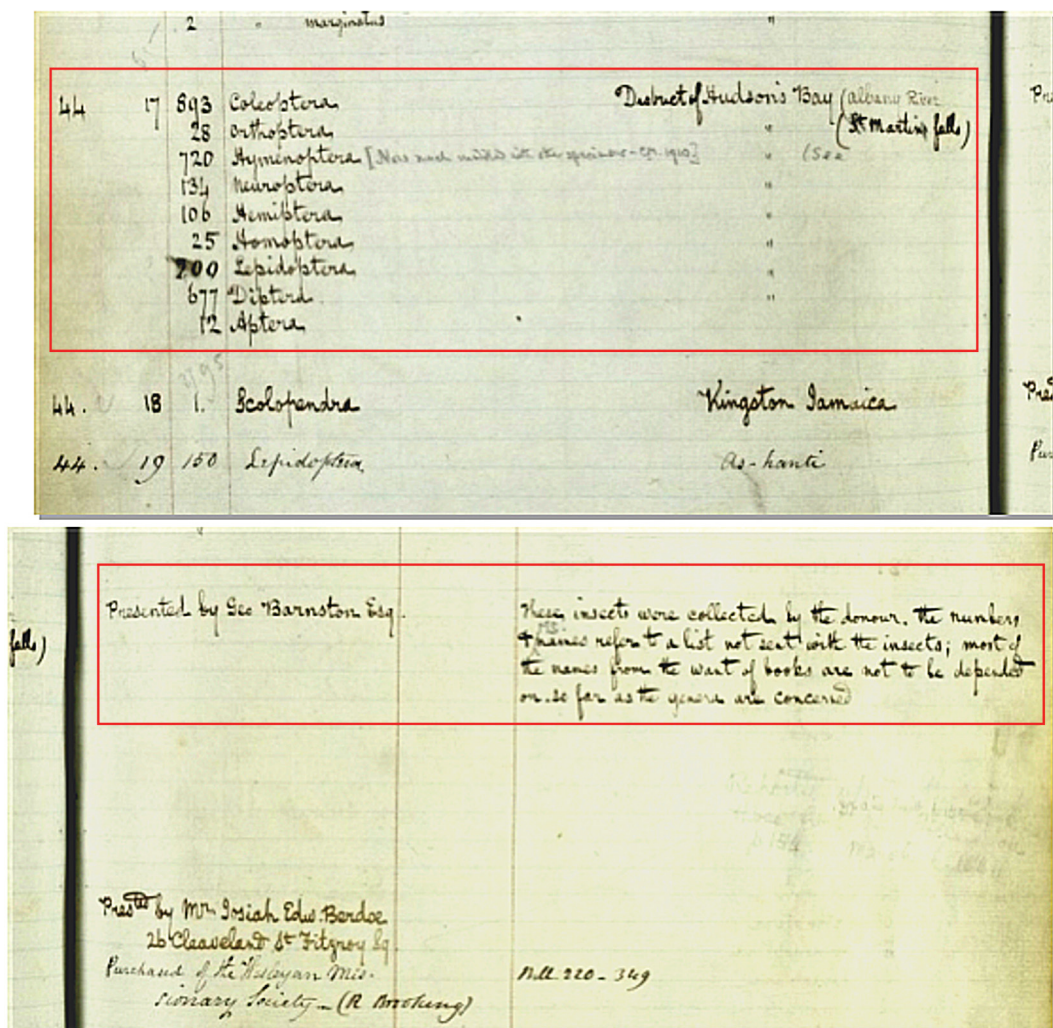 2 " marginatus "
44 17 893 Coleoptera District of Hudson's Bay (Albany River
28 Orthoptera " (St Martins falls)
720 Hymenoptera " (See
134 Neuroptera "
106 Hemiptera "
25 Homoptera "
200 Lepidoptera "
677 Diptera "
12 Aptera
2795
44. 18 1. Scolopendra Kingston Jamaica
44. 19 150 Lepidoptera As-hanti
falls)
Presented by Geo Barnston Esq. These insects were collected by the donour. the numbers
& names refer to a list not sent with the insects; most of
the names from the want of books are not to be depended
on. so far as the genera are concerned
Prested by Mr Josiah Edw. Berdoe
26 Cleaveland St Fitzroy Sq
Purchased of the Wesleyan Mis- 220-349
sionary Society - (R Brooking)